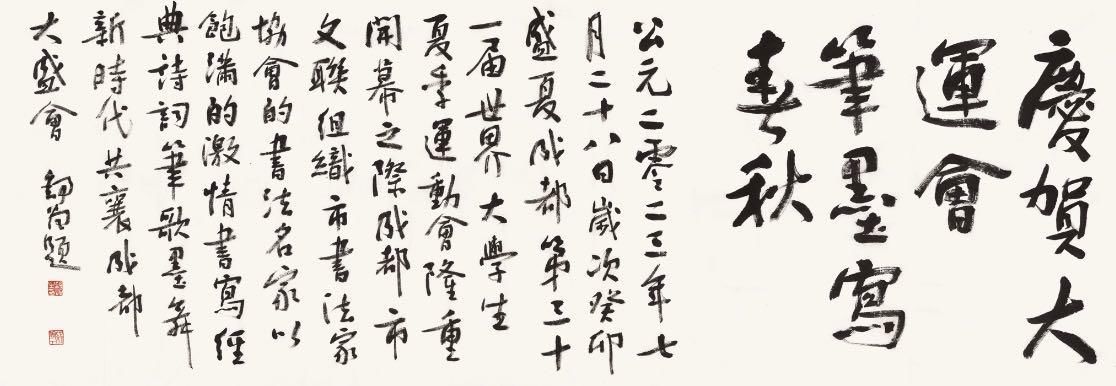 慶賀大
運會
筆墨寫
春秋
公元二零二三年七
月二十八日歲次癸卯
盛夏成都第三十
一届世界大學生
夏季運動會隆重
開幕之際成都市
文聯組織市書法家
協會的書法名家以
飽滿的激情書寫經
典詩詞筆歌墨舞
新時代共襄成都
大盛會 題